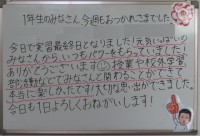 1年生のみなさん、今週もおつかれさまでした。
今日で実習最終日となりました！元気いっぱいの
みなさんから、いつもパワーをもらっていました！
ありがとうございます 授業や校外学習
部活動などでみなさんと関わることができて
本当に楽しかったです！大切な思い出ができました。
今日も1日よろしくおねがいします！